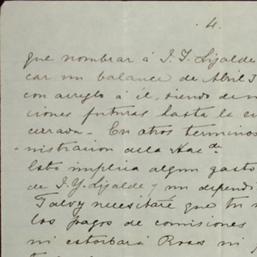 4.
que nombrar á J. Y. Lizalde
car un balance de Abril 3
con arreglo á él, siendo de
ciones futuras hasta la
cerrada. - En otros terminos
nistracion de la Hacda
Esto implica algun gasto
de J. Y. Lizalde y un depend
Talvez necesitaré que tu
los pagos de comisiones
ni estorbará Rosas ni